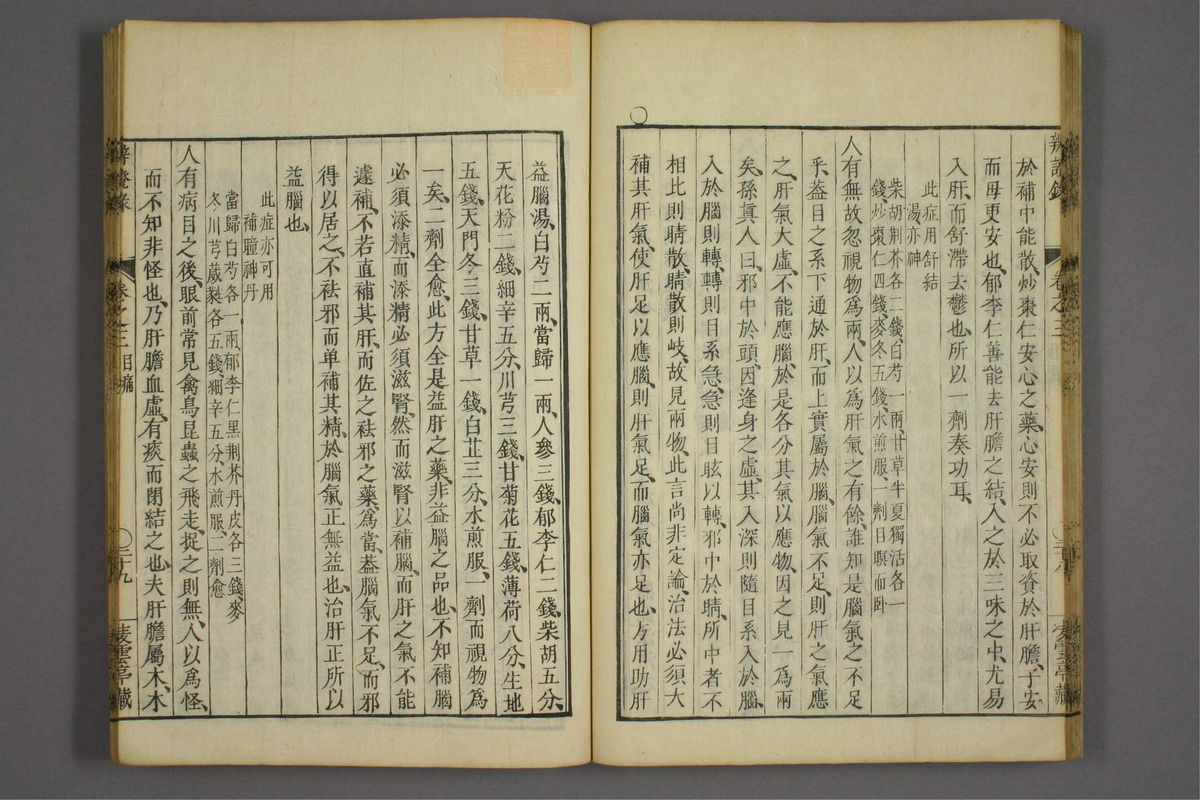 辨證錄 卷之三
於補中能散炒棗仁安心之藥、心安則不必取資於肝膽、子安
而母更安也、郁李仁善能去肝膽之結、入之於三味之中、尤易
入肝、而舒滯去鬱也、所以一劑奏功耳、
此症用舒結
湯亦神
柴胡荆芥各二錢、白芍一兩、甘草半夏獨活各一
錢、炒棗仁四錢、麥冬五錢、水煎服、一劑目瞑而卧
人有無故忽視物為兩、人以為肝氣之有餘、誰知是腦氣之不足
乎、蓋目之系下通於肝、而上實屬於腦、腦氣不足、則肝之氣應
之、肝氣大虛、不能應腦、於是各分其氣以應物、因之見一為兩
矣、孫真人曰、邪中於頭、因逢身之虛、其入深、則隨目系入於腦、
入於腦則轉、轉則目系急、急則目眩以轉、邪中於睛、所中者不
相比則睛散、睛散則岐、故見兩物、此言尚非定論、治法必須大
補其肝氣、使肝足以應腦、則肝氣足、而腦氣亦足也、方用助肝
益腦湯、白芍二兩、當歸一兩、人參三錢、郁李仁二錢、柴胡五分、
天花粉二錢、細辛五分、川芎三錢、甘菊花五錢、薄荷八分、生地
五錢、天門冬三錢、甘草一錢、白芷三分、水煎服、一劑而視物為
一矣、二劑全愈、此方全是益肝之藥、非益腦之品也、不知補腦
必須添精、而添精必須滋腎、然而滋腎以補腦、而肝之氣不能
遽補、不若直補其肝、而佐之祛邪之藥、為當、蓋腦氣不足、而邪
得以居之、不祛邪而单補其精、於腦氣正無益也、治肝正所以
益腦也、
此症亦可用
補瞳神丹
當歸白芍各一兩、郁李仁黑荆芥丹皮各三錢、麥
冬川芎葳蕤各五錢、細辛五分、水煎服、二劑愈
人有病目之後、眼前常見禽鳥昆蟲之飛走、捉之則無、人以為怪、
而不知非怪也、乃肝膽血虛、有痰而閉結之也、夫肝膽屬木、木
卷之三 目痛 三十九